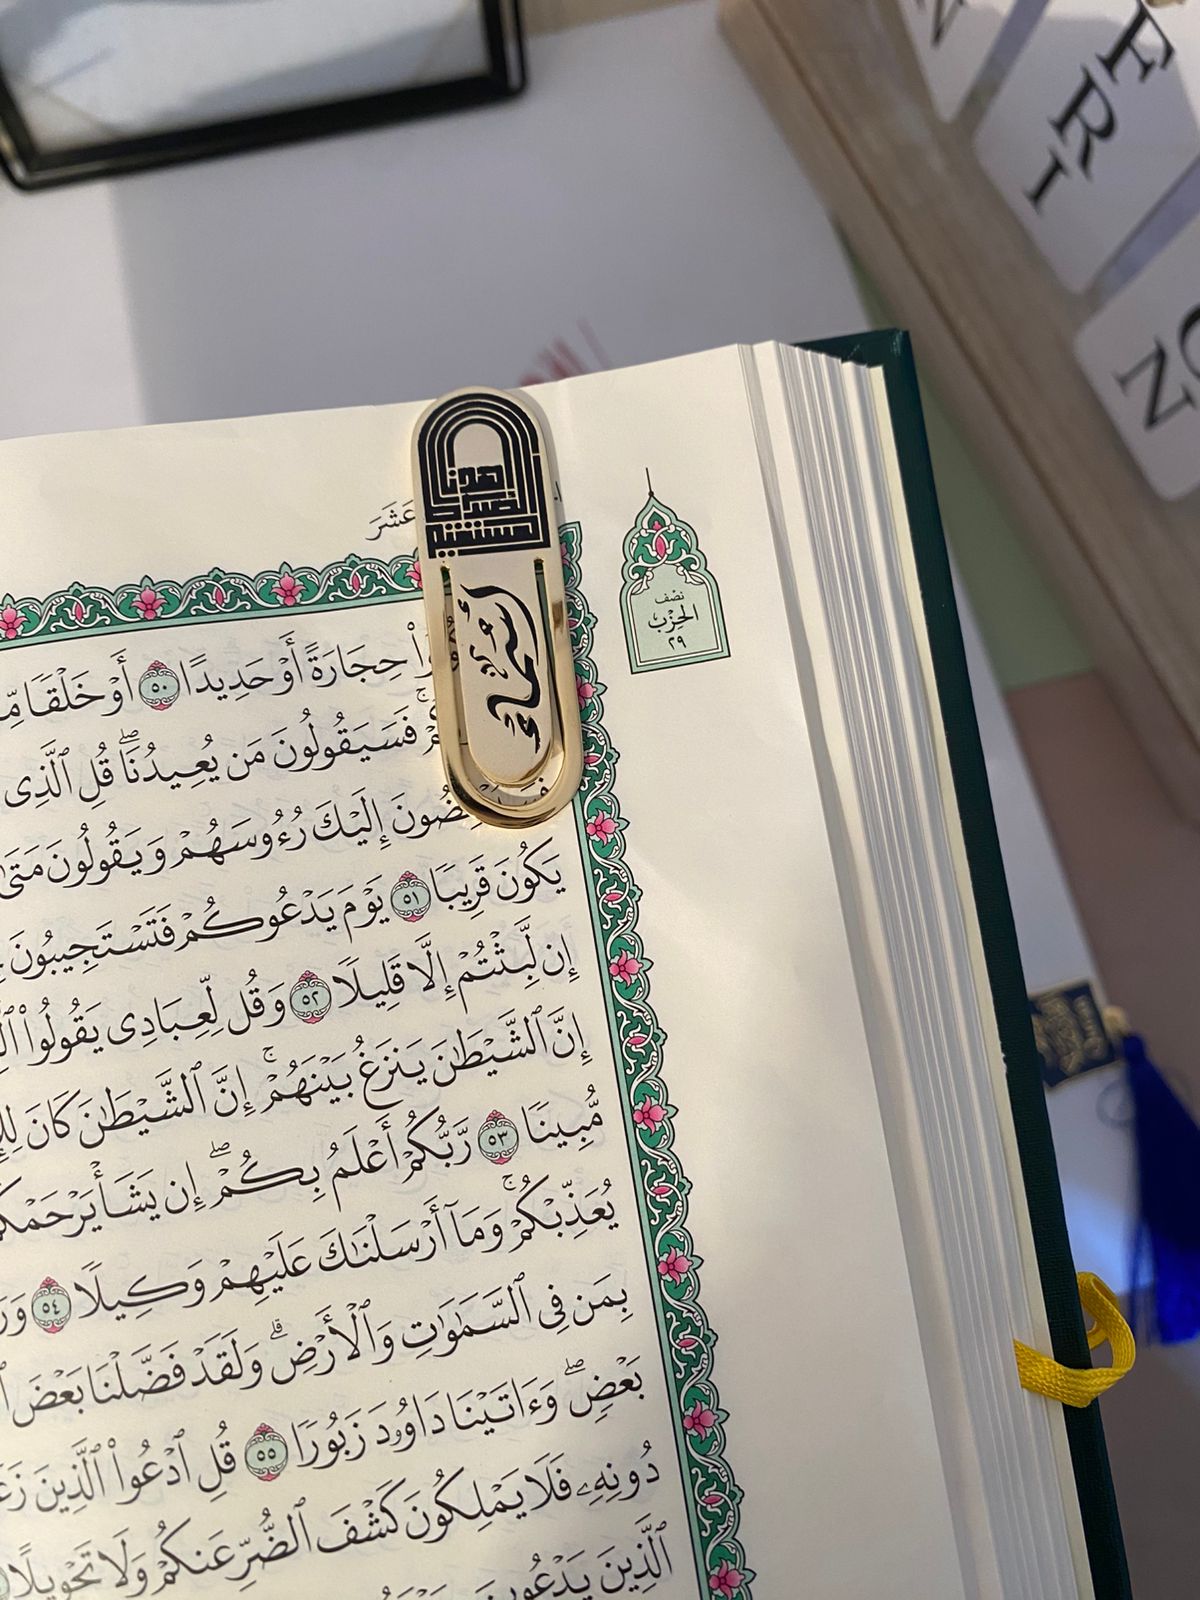 عَشَرَ
اهدنا
الصراط
المستقيم
أسماء
نصف
الحزب
٢٩
حِجَارَةً أَوْ حَدِيدًا ٥٠ أَوْ خَلْقًا
فَسَيَقُولُونَ مَن يُعِيدُنَاۖ قُلِ ٱلَّذِى
إِلَيْكَ رُءُوسَهُمْ وَيَقُولُونَ مَتَىٰ
يَكُونَ قَرِيبًا ٥١ يَوْمَ يَدْعُوكُمْ فَتَسْتَجِيبُونَ
إِن لَّبِثْتُمْ إِلَّا قَلِيلًا ٥٢ وَقُل لِّعِبَادِى يَقُولُوا۟
إِنَّ ٱلشَّيْطَٰنَ يَنزَغُ بَيْنَهُمْۚ إِنَّ ٱلشَّيْطَٰنَ كَانَ
مُّبِينًا ٥٣ رَّبُّكُمْ أَعْلَمُ بِكُمْۖ إِن يَشَأْ يَرْحَمْكُمْ
يُعَذِّبْكُمْۚ وَمَآ أَرْسَلْنَٰكَ عَلَيْهِمْ وَكِيلًا ٥٤
بِمَن فِى ٱلسَّمَٰوَٰتِ وَٱلْأَرْضِۗ وَلَقَدْ فَضَّلْنَا بَعْضَ
بَعْضٍۖ وَءَاتَيْنَا دَاوُۥدَ زَبُورًا ٥٥ قُلِ ٱدْعُوا۟ ٱلَّذِينَ
دُونِهِۦ فَلَا يَمْلِكُونَ كَشْفَ ٱلضُّرِّ عَنكُمْ وَلَا تَحْوِيلًا
ٱلَّذِينَ يَدْعُونَ
F
R
I
O
N